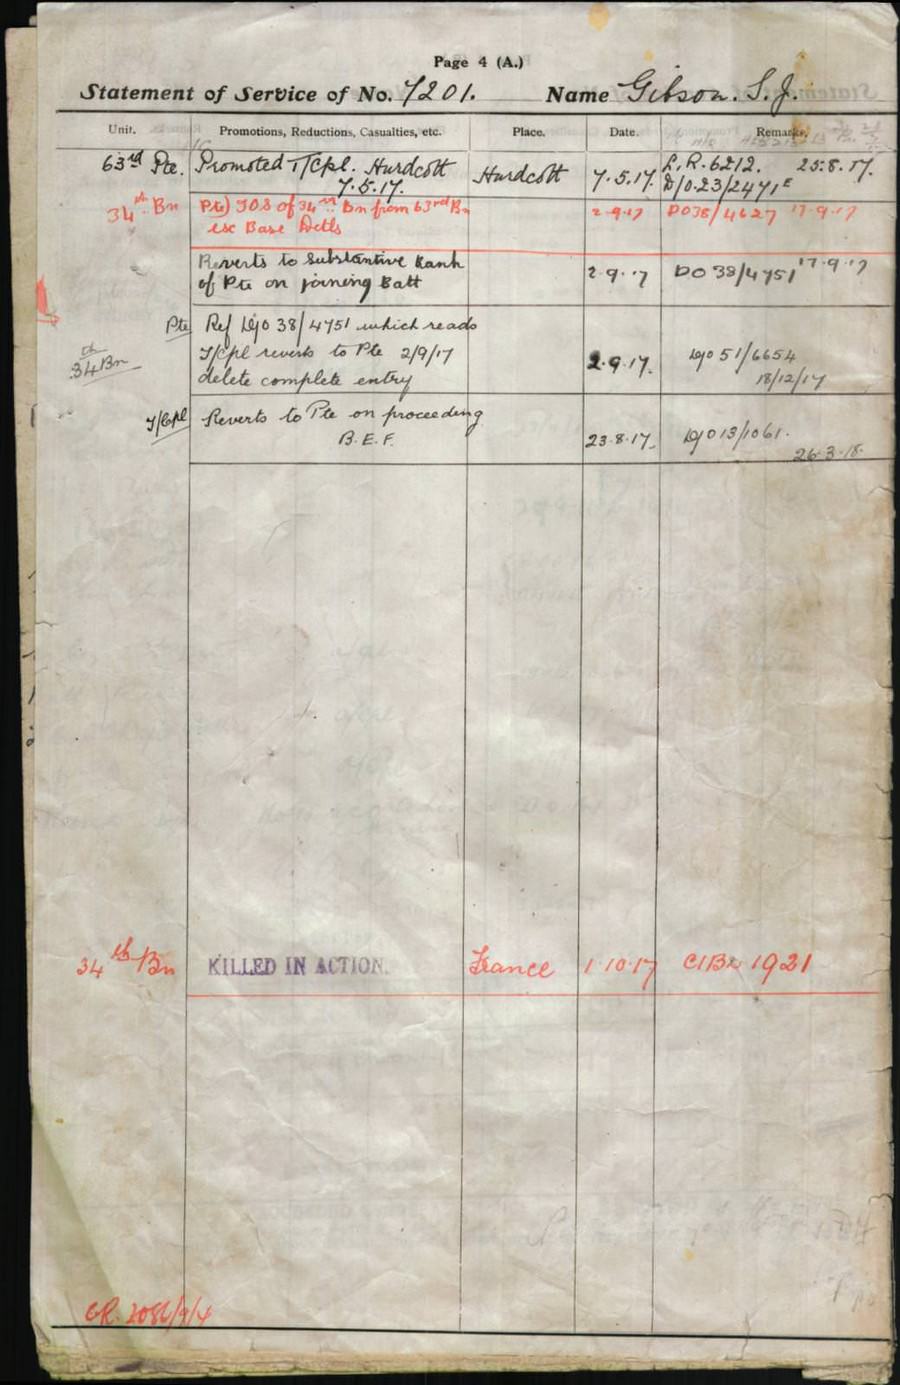 Page 4 (A.)
Statement of Service of No. 7201. Name Gibson. S. J.
Unit. Promotions, Reductions, Casualties, etc. Place. Date. Remarks.
63rd Pte. Promoted T/Cpl. Hurdcott Hurdcott 7.5.17. L.R. 6212. 25.8.17.
7.5.17. D/O.23/2471E
34th Bn Pte) TOS of 34th Bn from 63rd Bn 2-9-17 DO38/4627 17-9-17
esc Base Details
Reverts to Substantive Rank
of Pte on joining Batt 2-9-17 DO 38/4751 17-9-17
Pte Ref D/O 38/4751 which reads
34th Bn T/Cpl reverts to Pte 2/9/17 2.9.17. D/O 51/6654
delete complete entry 18/12/17
T/Cpl Reverts to Pte on proceeding
B.E.F. 23.8.17. D/O 13/1061.
26.3.18.
34th Bn KILLED IN ACTION. France 1.10.17 1921